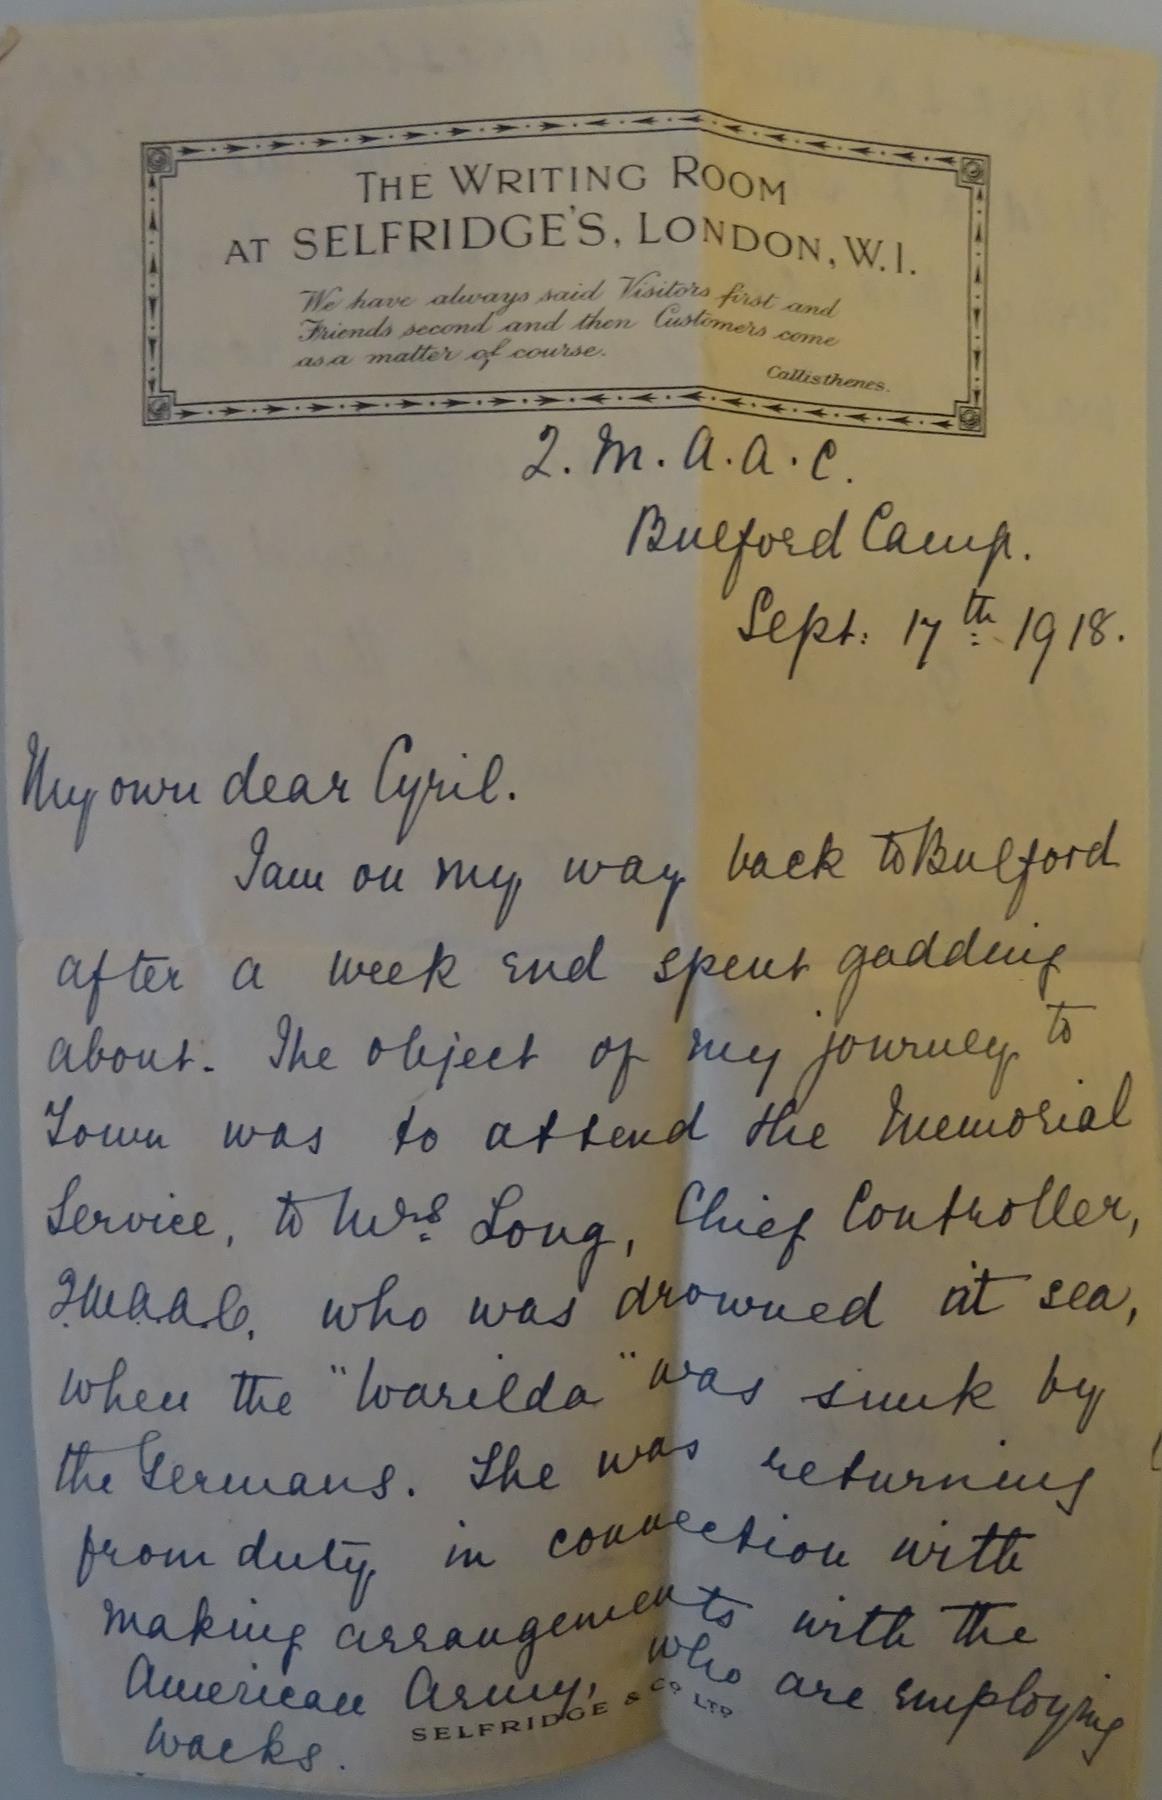 THE WRITING ROOM
AT SELFRIDGE'S, LONDON, W.1.
We have always said Visitors first and
Friends second and then Customers come
as a matter of course.
Callisthenes.
Q.M.A.A.C.
Bulford Camp.
Sept: 17th 1918.
My own dear Cyril.
I am on my way back to Bulford
after a week end spent gadding
about. The object of my journey to
Town was to attend the Memorial
Service, to Mrs Long, Chief Controller,
Q.M.A.A.C. who was drowned at sea,
when the "Warilda" was sunk by
the Germans. She was returning
from duty in connection with
making arrangements with the
American Army, who are employing
Waacks.
SELFRIDGE & CO LTD